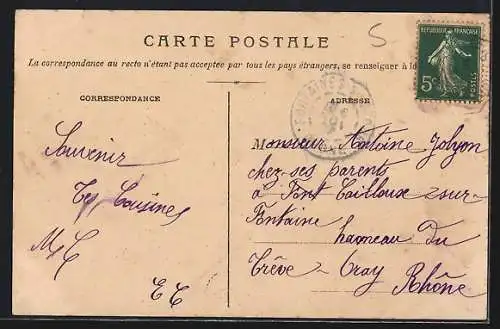 5
CARTE POSTALE
La correspondance au recto n'étant pas acceptée par tous les pays étrangers, se renseigner à la
CORRESPONDANCE
ADRESSE
REPUBLIQUE FRANÇAISE
5c
POSTES
Souvenir
Tes Cousines
M C
E C
Monsieur Antoine Jolyon
chez ses parents
à Font Cailloux-sur-
Fontaine
hameau Du
Trêve - Oray Rhône